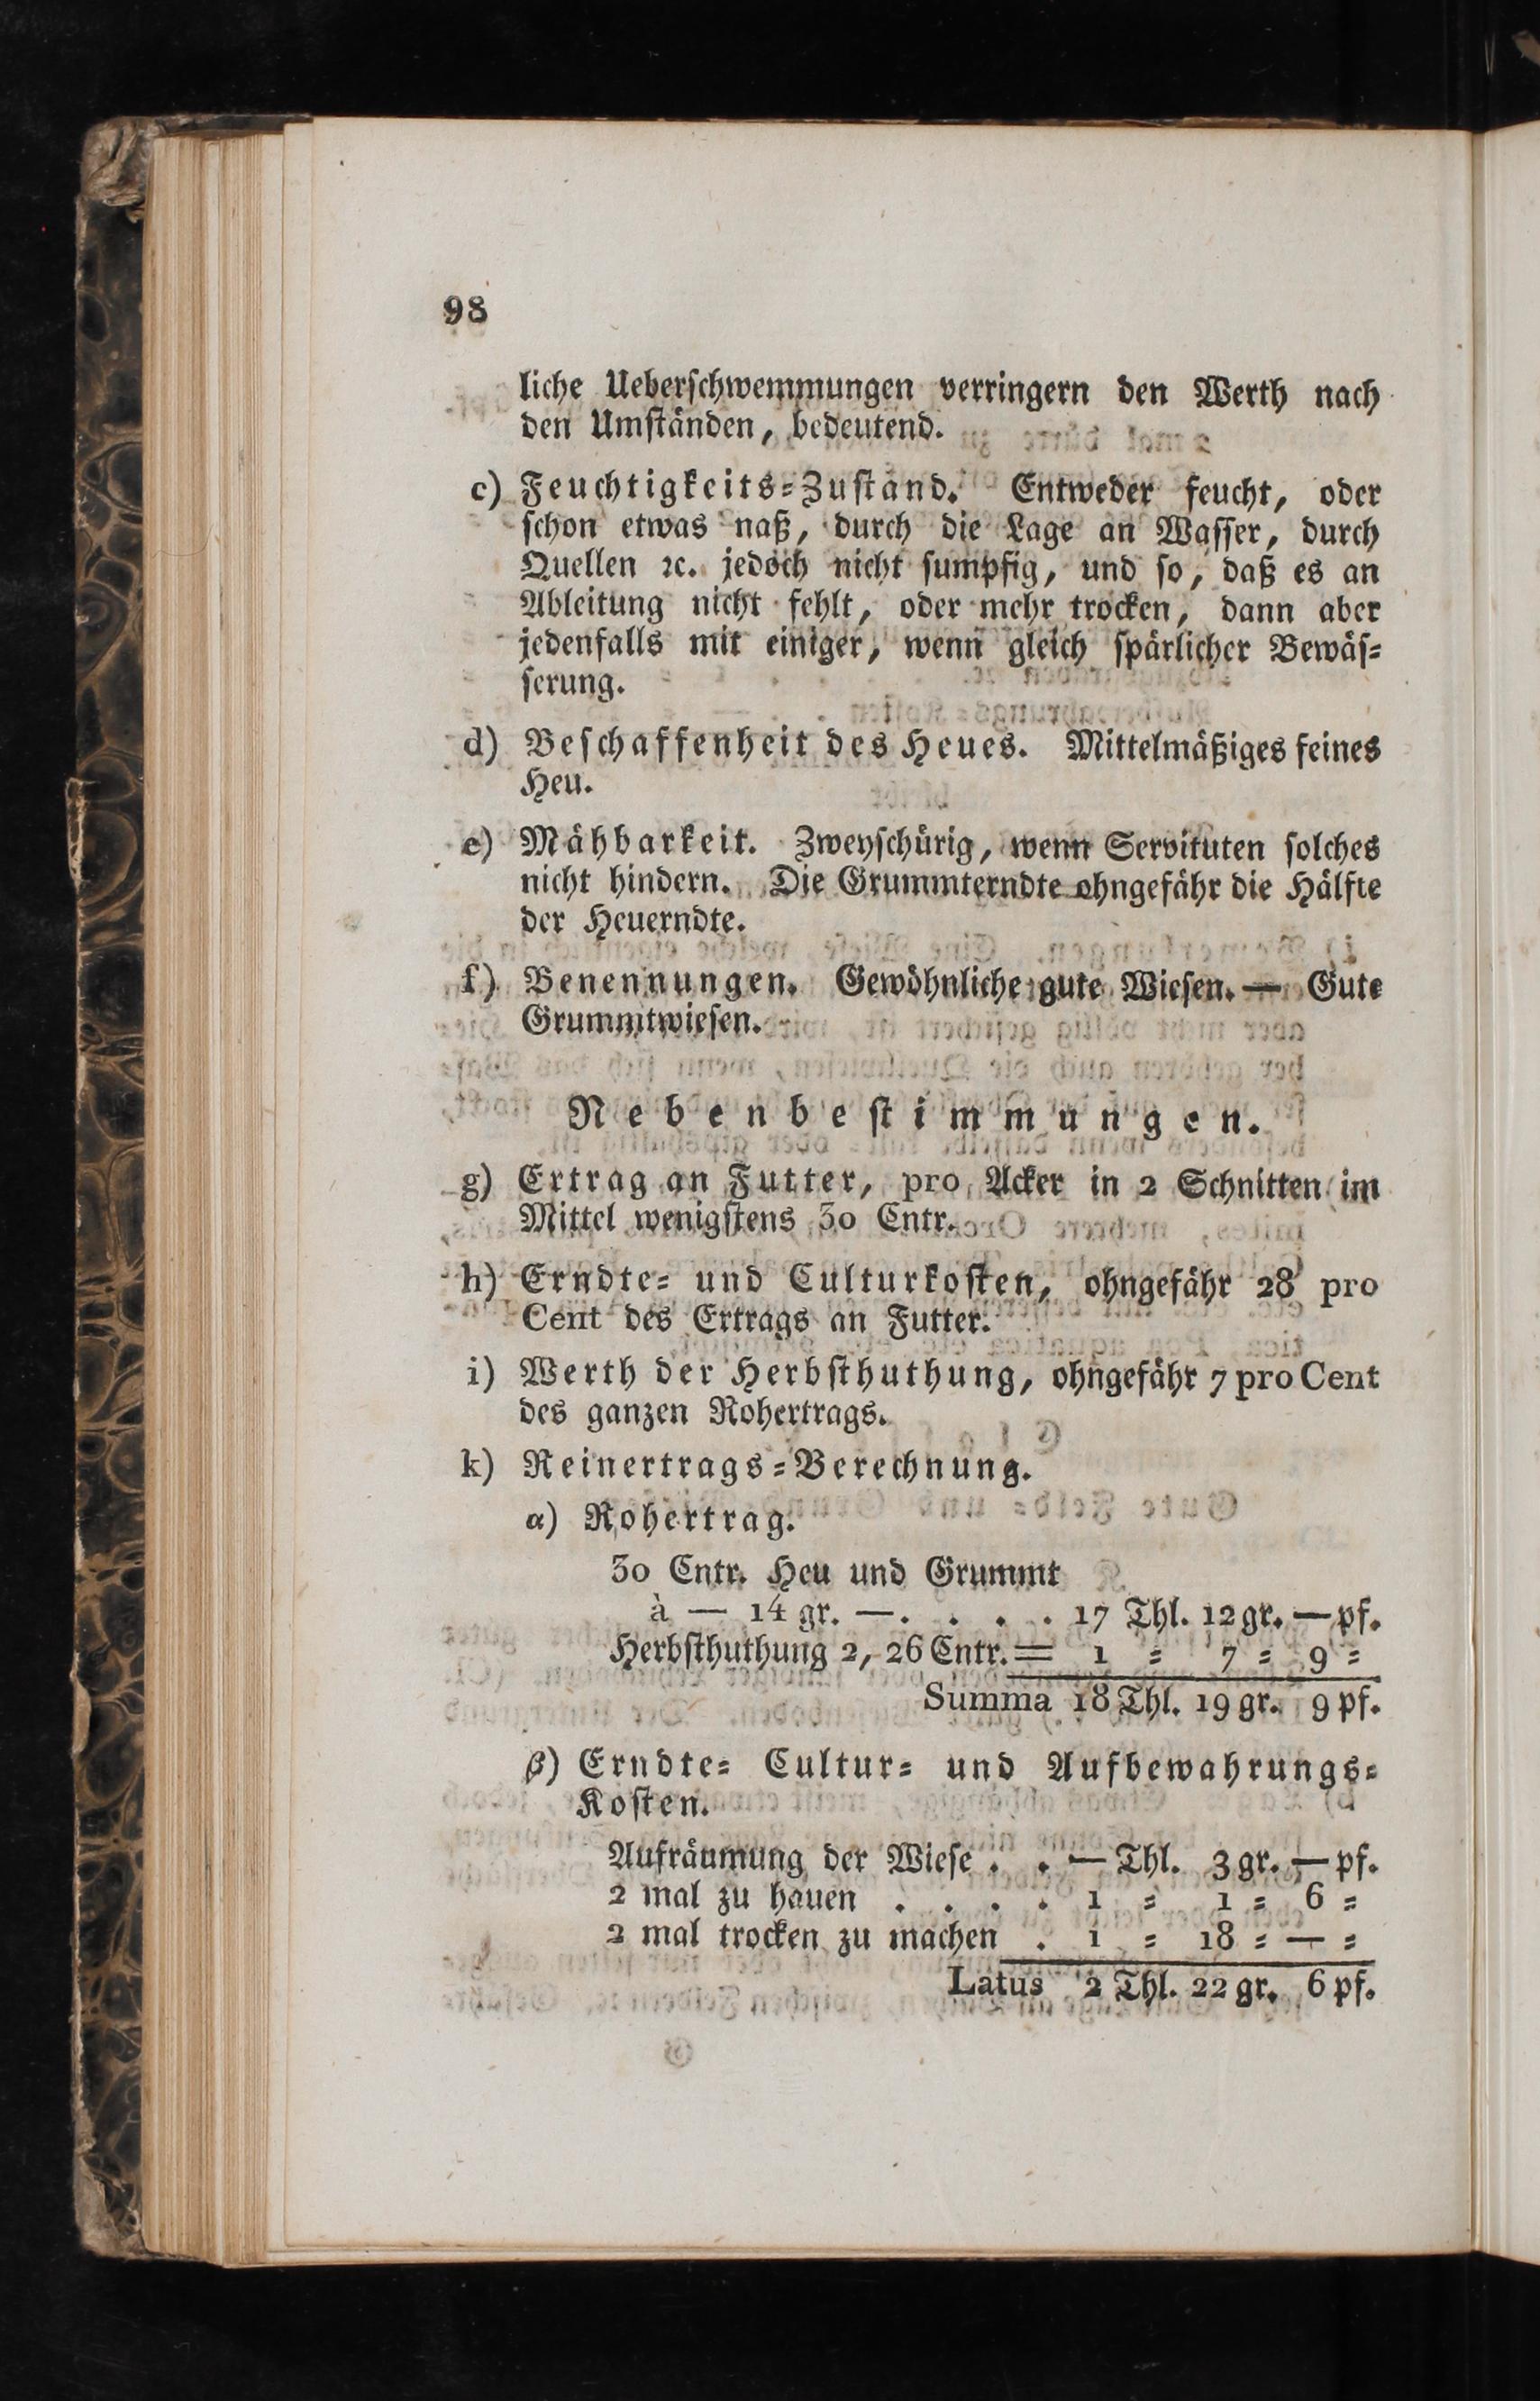 98
liche Ueberschwemmungen verringern den Werth nach
den Umständen, bedeutend.
c) Feuchtigkeits-Zustand. Entweder feucht, oder
schon etwas naß, durch die Lage an Wasser, durch
Quellen ꝛc. jedoch nicht sumpfig, und so, daß es an
Ableitung nicht fehlt, oder mehr trocken, dann aber
jedenfalls mit einiger, wenn gleich spärlicher Bewäs-
serung.
d) Beschaffenheit des Heues. Mittelmäßiges feines
Heu.
e) Mähbarkeit. Zweyschürig, wenn Servituten solches
nicht hindern. Die Grummterndte ohngefähr die Hälfte
der Heuerndte.
f) Benennungen. Gewöhnliche gute Wiesen. — Gute
Grummtwiesen.
Nebenbestimmungen.
g) Ertrag an Futter, pro Acker in 2 Schnitten im
Mittel wenigstens 30 Cntr.
h) Erndte- und Culturkosten, ohngefähr 28 pro
Cent des Ertrags an Futter.
i) Werth der Herbsthuthung, ohngefähr 7 pro Cent
des ganzen Rohertrags.
k) Reinertrags-Berechnung.
α) Rohertrag.
30 Cntr. Heu und Grummt
à — 14 gr. — . . . . 17 Thl. 12 gr. — pf.
Herbsthuthung 2, 26 Cntr. = 1 = 7 = 9 =
Summa 18 Thl. 19 gr. 9 pf.
β) Erndte- Cultur- und Aufbewahrungs-
Kosten.
Aufräumung der Wiese . . — Thl. 3 gr. — pf.
2 mal zu hauen . . . . 1 = 1 = 6 =
2 mal trocken zu machen . 1 = 18 = — =
Latus 2 Thl. 22 gr. 6 pf.